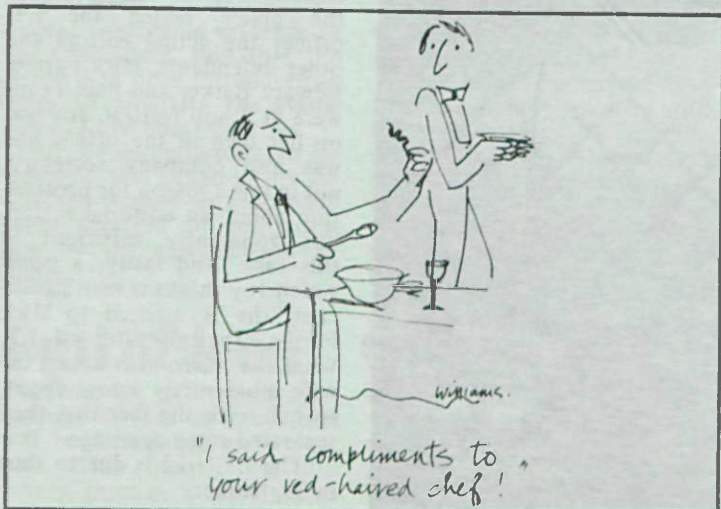 williams.
"I said compliments to
your red-haired chef!"